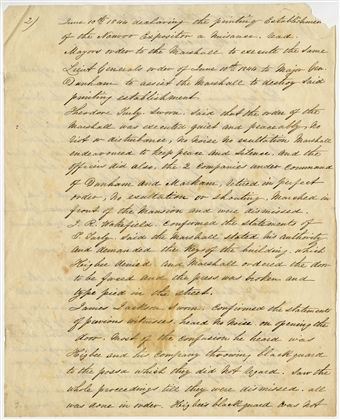 2)
June 10th 1844 declaring the printing Establishment
of the Nauvoo Expositor a Nuisance. Read.
Mayors order to the Marshall to execute the same
Lieut Generals order of June 10th 1844 to Major Gen
Dunham to assist the Marshall to destroy said
printing establishment.
Theodore Turly, sworn. Said that the order of the
Marshall was executed quiet and peaceably, No
riot or disturbance, no Noise no exultation Marshall
endeavored to keep peace and silence. And the
officers did also, the 2 Companies under command
of Dunham and Markam, retired in perfect
order, No exultation or shouting. Marched in
front of the Mansion and were dismissed.
J. R. Wakefield, Confirmed the statements of
T. Turly. Said the Marshall stated his authority
and demanded the Key of the building, which
Higbee denied. And Marshall ordered the door
to be forced and the press was broken and
type pied in the street.
James Jackson Sworn. Confirmed the statements
of previous witnesses, heard no Noise on opening the
door. Most of the confusion he heard was
Higbee and his company throwing blackguard
to the posse which they did not regard. Saw the
whole proceedings till they were dismissed. all
was done in order. Higbees blackguard was not